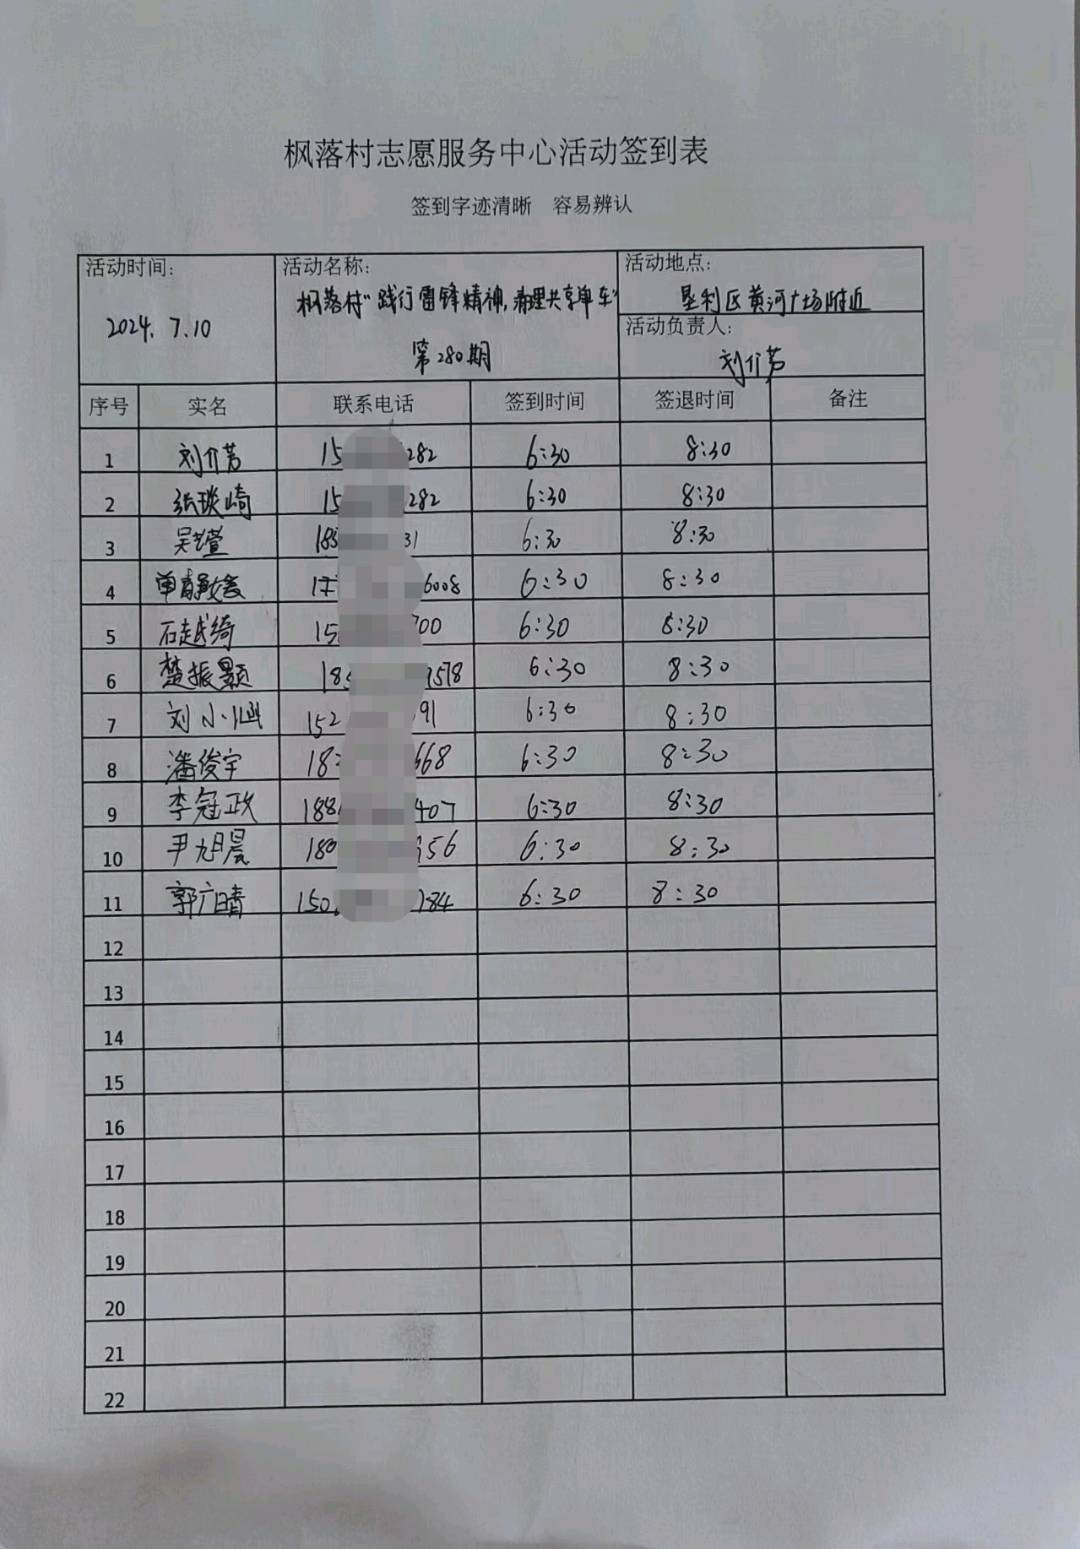 枫落村志愿服务中心活动签到表
签到字迹清晰 容易辨认
活动时间: 2024. 7.10
活动名称: 枫落村“践行雷锋精神,清理共享单车”
第280期
活动地点: 垦利区黄河广场附近
活动负责人: 刘介芳
序号 实名 联系电话 签到时间 签退时间 备注
1 刘介芳 15 282 6:30 8:30
2 张琰崎 15 282 6:30 8:30
3 吴 18 31 6:30 8:30
4 单静 17 6008 6:30 8:30
5 石越绮 15 00 6:30 8:30
6 楚振灏 18 578 6:30 8:30
7 刘小涵 152 91 6:30 8:30
8 潘俊宇 18 668 6:30 8:30
9 李冠政 188 407 6:30 8:30
10 尹旭晨 180 56 6:30 8:30
11 郭广晴 150 784 6:30 8:30
12
13
14
15
16
17
18
19
20
21
22